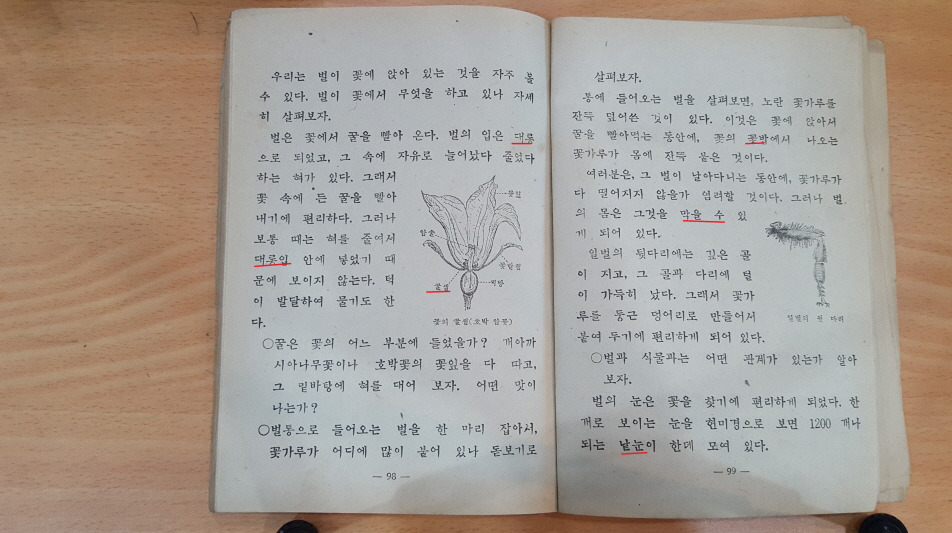 우리는 벌이 꽃에 앉아 있는 것을 자주 볼
수 있다. 벌이 꽃에서 무엇을 하고 있나 자세
히 살펴보자.
벌은 꽃에서 꿀을 빨아 온다. 벌의 입은 대롱
으로 되었고, 그 속에 자유로 늘어났다 줄었다
하는 혀가 있다. 그래서
꽃 속에 든 꿀을 빨아
내기에 편리하다. 그러나
보통 때는 혀를 줄여서
대롱입 안에 넣었기 때
문에 보이지 않는다. 턱
이 발달하여 물기도 한
다.
꽃잎
암술
꽃받침
꿀샘
씨방
꽃의 꿀샘(호박 암꽃)
○꿀은 꽃의 어느 부분에 들었을가? 개아까
시아나무꽃이나 호박꽃의 꽃잎을 다 따고,
그 밑바탕에 혀를 대어 보자. 어떤 맛이
나는가?
○벌통으로 들어오는 벌을 한 마리 잡아서,
꽃가루가 어디에 많이 붙어 있나 돋보기로
— 98 —
살펴보자.
통에 들어오는 벌을 살펴보면, 노란 꽃가루를
잔뜩 덮어쓴 것이 있다. 이것은 꽃에 앉아서
꿀을 빨아먹는 동안에, 꽃의 꽃밥에서 나오는
꽃가루가 몸에 잔뜩 묻은 것이다.
여러분은, 그 벌이 날아다니는 동안에, 꽃가루가
다 떨어지지 않을가 염려할 것이다. 그러나 벌
의 몸은 그것을 막을 수 있
게 되어 있다.
일벌의 뒷다리에는 깊은 골
이 지고, 그 골과 다리에 털
이 가득히 났다. 그래서 꽃가
루를 둥근 덩어리로 만들어서
붙여 두기에 편리하게 되어 있다.
일벌의 뒷 다리
○벌과 식물과는 어떤 관계가 있는가 알아
보자.
벌의 눈은 꽃을 찾기에 편리하게 되었다. 한
개로 보이는 눈을 현미경으로 보면 1200 개나
되는 낱눈이 한데 모여 있다.
— 99 —